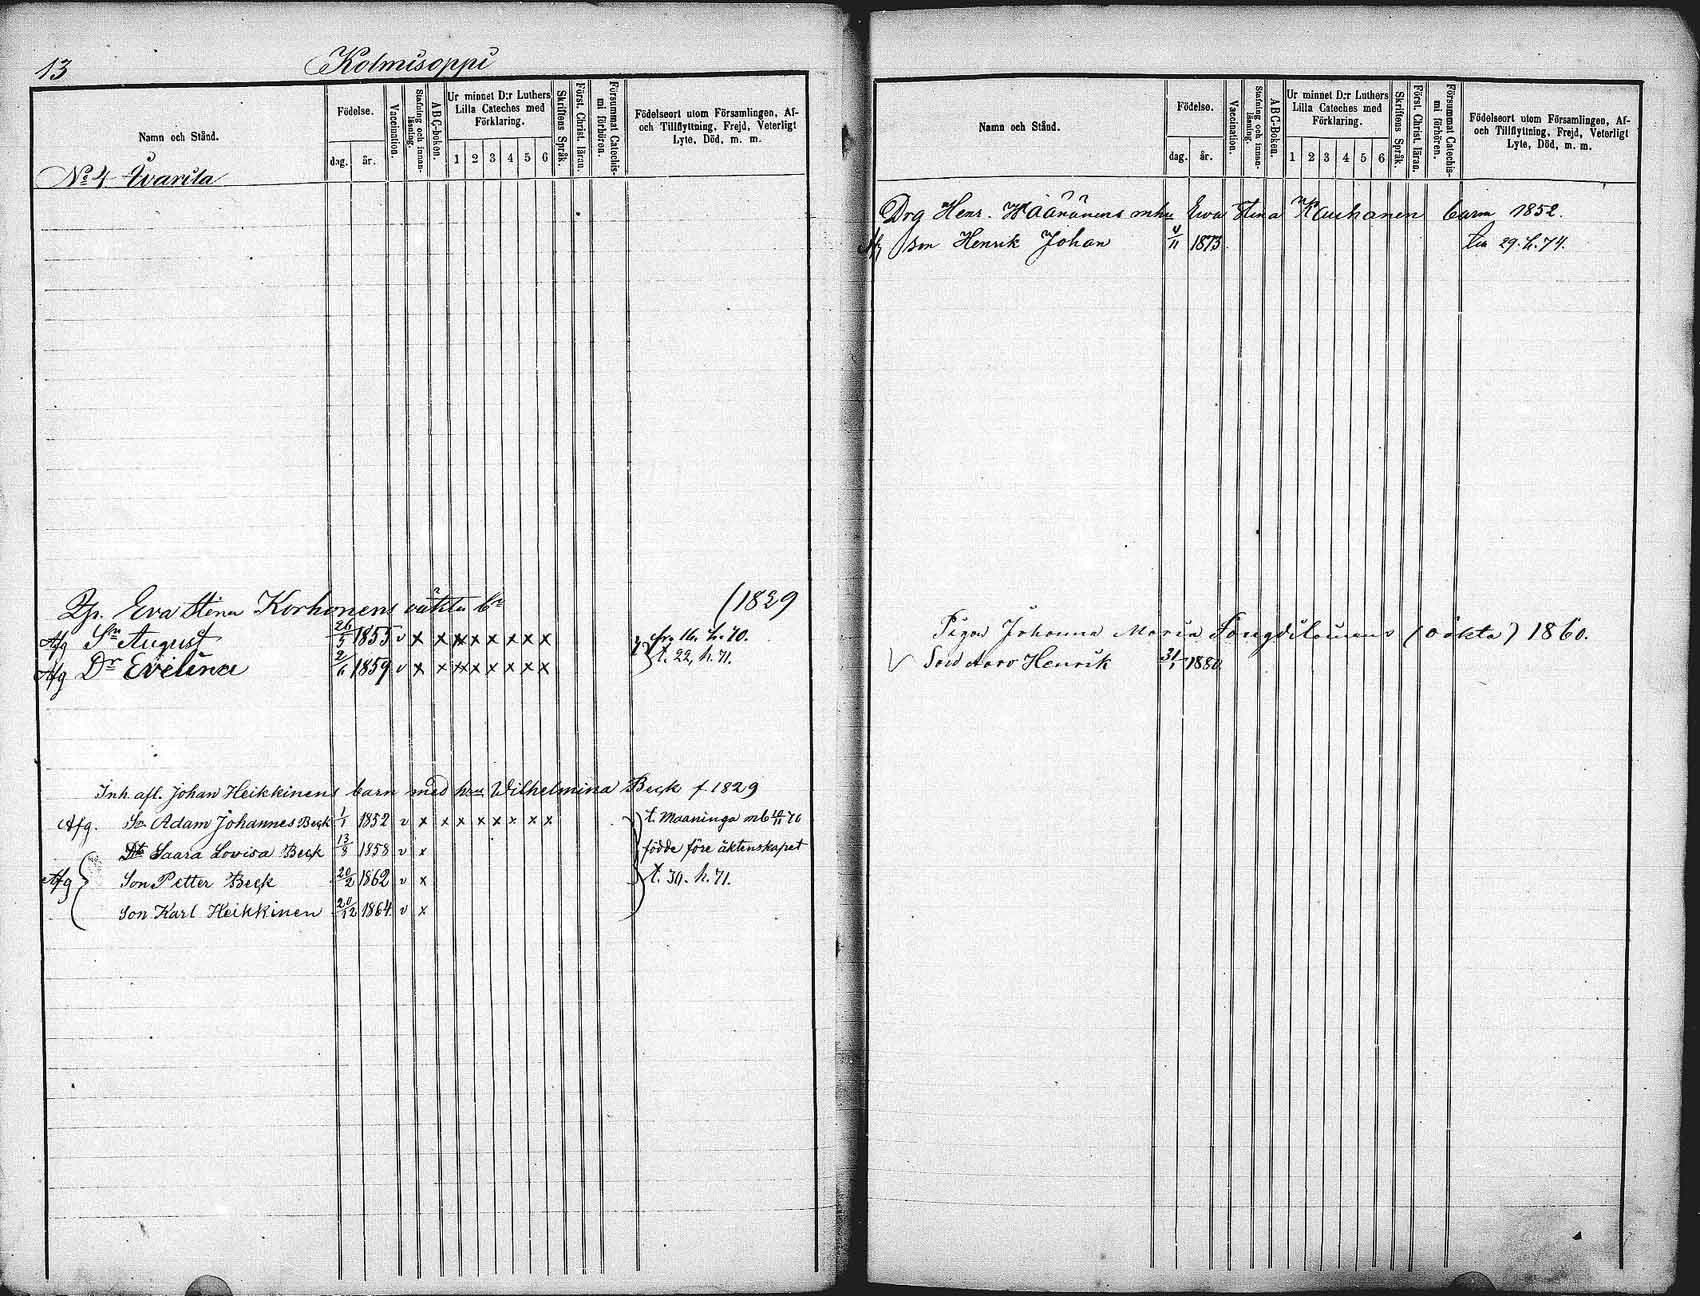 13
Kolmisoppi
Namn och Stånd.
Födelse.
dag.
år.
Vaccination.
Stafning och innan-läsning.
ABC-boken.
Ur minnet D:r Luthers Lilla Cateches med Förklaring.
1 2 3 4 5 6
Skriftens Språk.
Först. Christ. läran.
Försummat Catechis-mi förhören.
Födelseort utom Församlingen, Af- och Tillflyttning, Frejd, Veterligt Lyte, Död, m. m.
No 4 Waarila
Eva Stina Korhonens oäkta (1829
Afg Sn August 26/5 1855 v x x x x x x x x
Afg Dr Evelina 2/6 1859 v x x x x x x x x t. 22, h. 71.
Inh. afl. Johan Heikkinens barn med hu Wilhelmina Beck f 1829
Afg. So Adam Johannes Beck 1/1 1852 v x x x x x x x t. Maaninga
Saara Lovisa Beck 13/8 1858 v x födde före äktenskapet
Afg Son Petter Beck 20/2 1862 v x t. 30. h. 71.
Son Karl Heikkinen 20/12 1864 v x
Namn och Stånd.
Födelse.
dag.
år.
Vaccination.
Stafning och innan-läsning.
ABC-Boken.
Ur minnet D:r Luthers Lilla Cateches med Förklaring.
1 2 3 4 5 6
Skriftens Språk.
Först. Christ. läran.
Försummat Catechis-mi förhören.
Födelseort utom Församlingen, Af- och Tillflyttning, Frejd, Veterligt Lyte, Död, m. m.
Drg Henr. Wäänänens Ewa Stina Kauhanen barn 1852.
son Henrik Johan 4/11 1873 29. h. 74.
Pigan Johanna Maria (oäkta) 1860.
Son Aaro Henrik 31/1 1880